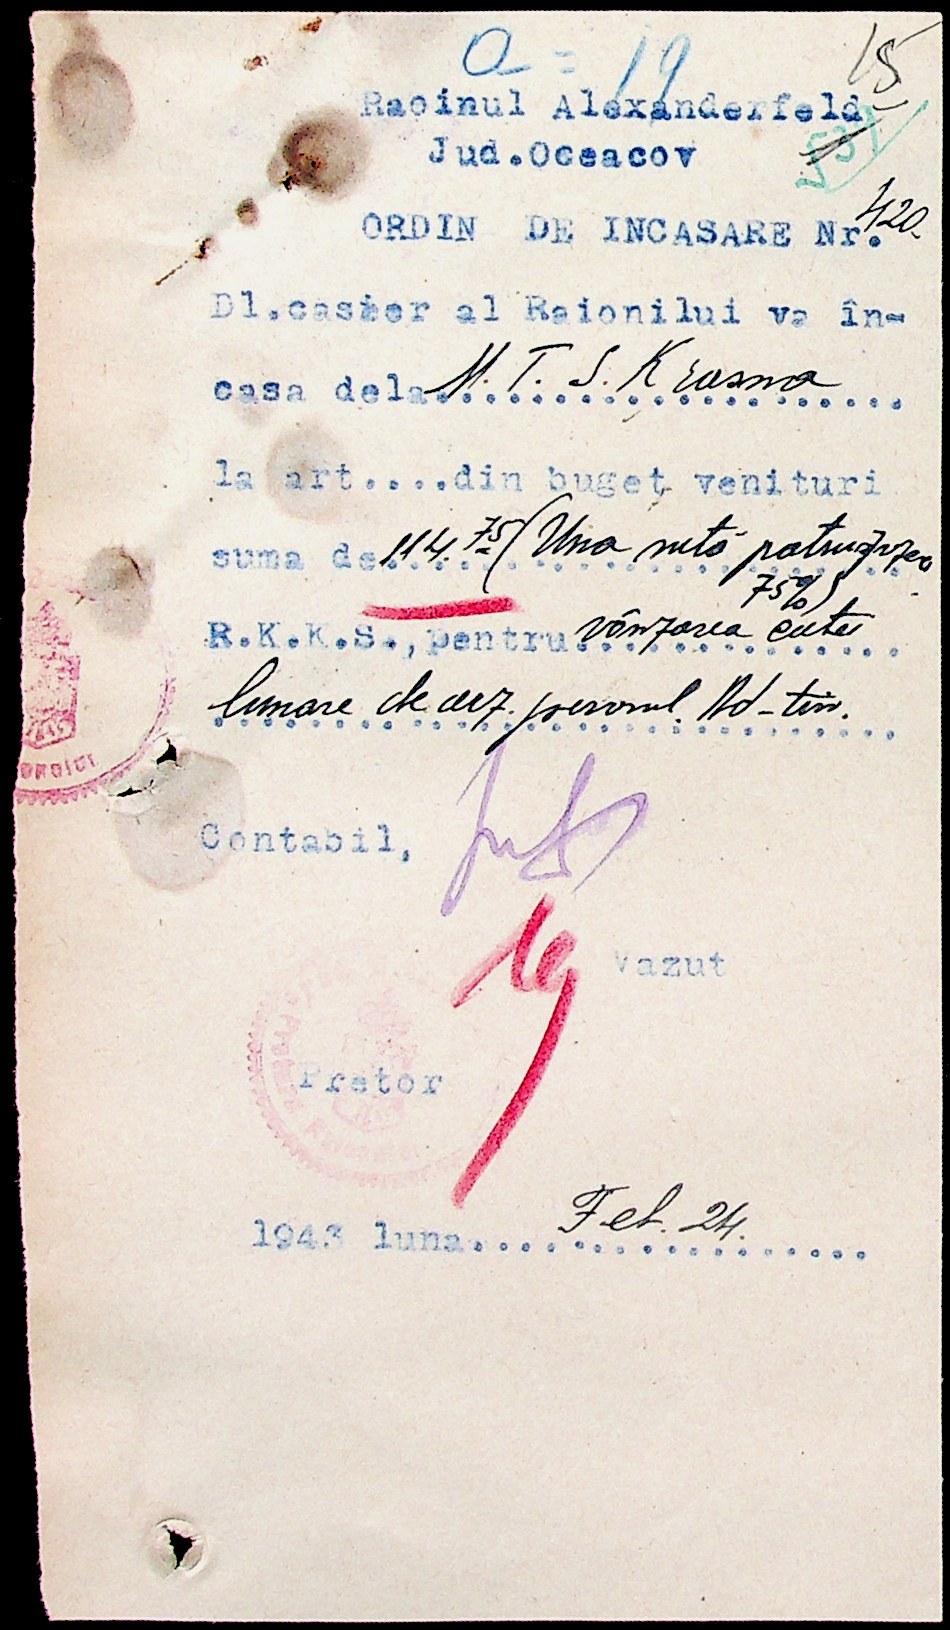 a = 19
15
537
Raoinul Alexanderfeld
Jud.Oceacov
ORDIN DE INCASARE Nr. 420.
Dl.casier al Raionilui va în-
casa dela M. T. S. Krasna
la art....din buget venituri
suma de 114.75 (Una sută
75%)
R.K.K.S., pentru vânzarea
lunare de Ad-tiv.
Contabil,
19
Vazut
Pretor
1943 luna Feb. 24.